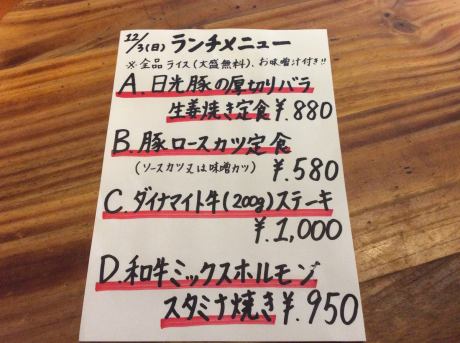 12/3(日) ランチメニュー
※全品 ライス(大盛無料)、お味噌汁付き!!
A. 日光豚の厚切りバラ
生姜焼き定食 ¥.880
B. 豚ロースカツ定食
(ソースカツ又は味噌カツ) ¥.580
C. ダイナマイト牛(200g)ステーキ
¥.1,000
D. 和牛ミックスホルモン
スタミナ焼き ¥.950